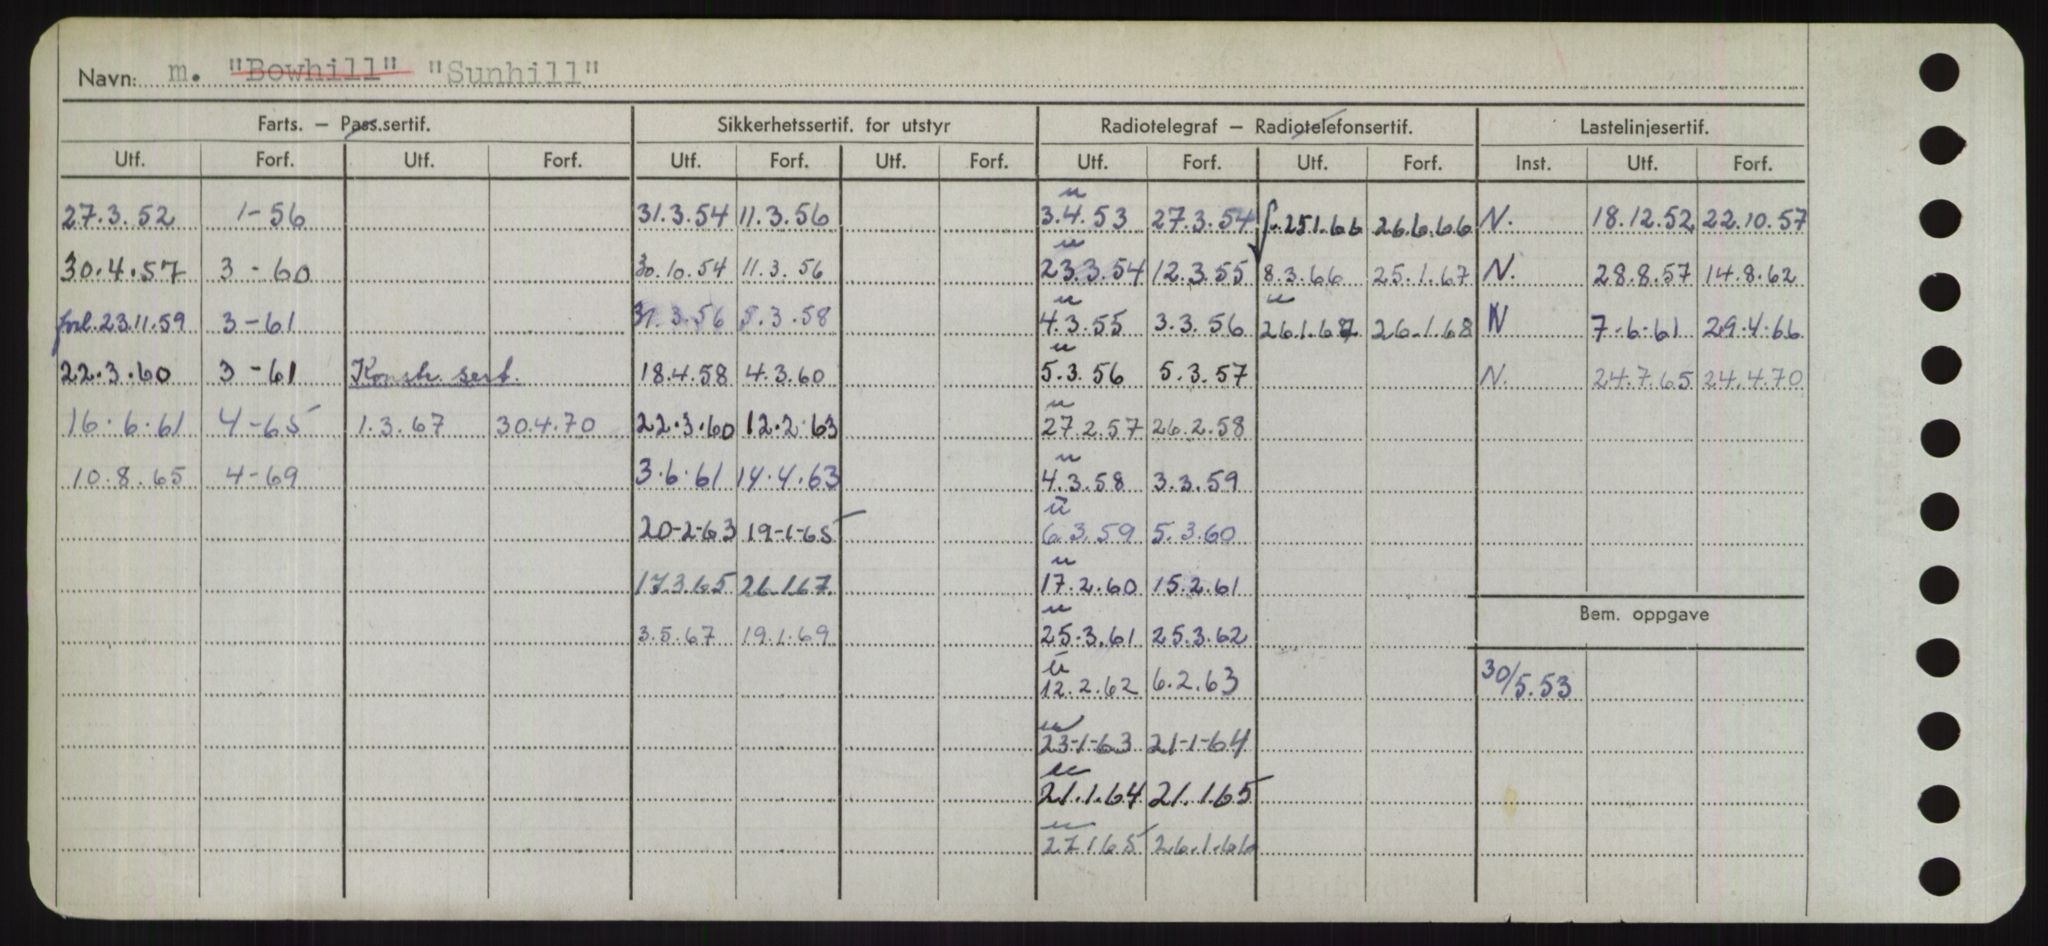 Navn: m. "Bowhill" "Sunhill"
Farts. – Pass.sertif. Sikkerhetssertif. for utstyr Radiotelegraf – Radiotelefonsertif. Lastelinjesertif.
Utf. Forf. Utf. Forf. Utf. Forf. Utf. Forf. Utf. Forf. Utf. Forf. Inst. Utf. Forf.
27.3.52 1-56 31.3.54 11.3.56 u 3.4.53 27.3.54 f. 25.1.66 26.6.66 N. 18.12.52 22.10.57
30.4.57 3-60 30.10.54 11.3.56 u 23.3.54 12.3.55 8.3.66 25.1.67 N. 28.8.57 14.8.62
forl. 23.11.59 3-61 31.3.56 8.3.58 u 4.3.55 3.3.56 u 26.1.67 26.1.68 N 7-6-61 29.4.66
22.3.60 3-61 Konstr. sert. 18.4.58 4.3.60 u 5.3.56 5.3.57 N. 24.7.65 24.4.70
16.6.61 4-65 1.3.67 30.4.70 22.3.60 12.2.63 u 27.2.57 26.2.58
10.8.65 4-69 3.6.61 14.4.63 u 4.3.58 3.3.59
20-2-63 19-1-65 u 6.3.59 5.3.60
17.3.65 26.1.67. u 17.2.60 15.2.61
Bem. oppgave
3.5.67 19.1.69 u 25.3.61 25.3.62
u 12.2.62 6.2.63 30/5.53
u 23-1-63 21-1-64
u 21.1.64 21.1.65
u 27.1.65 26.1.66